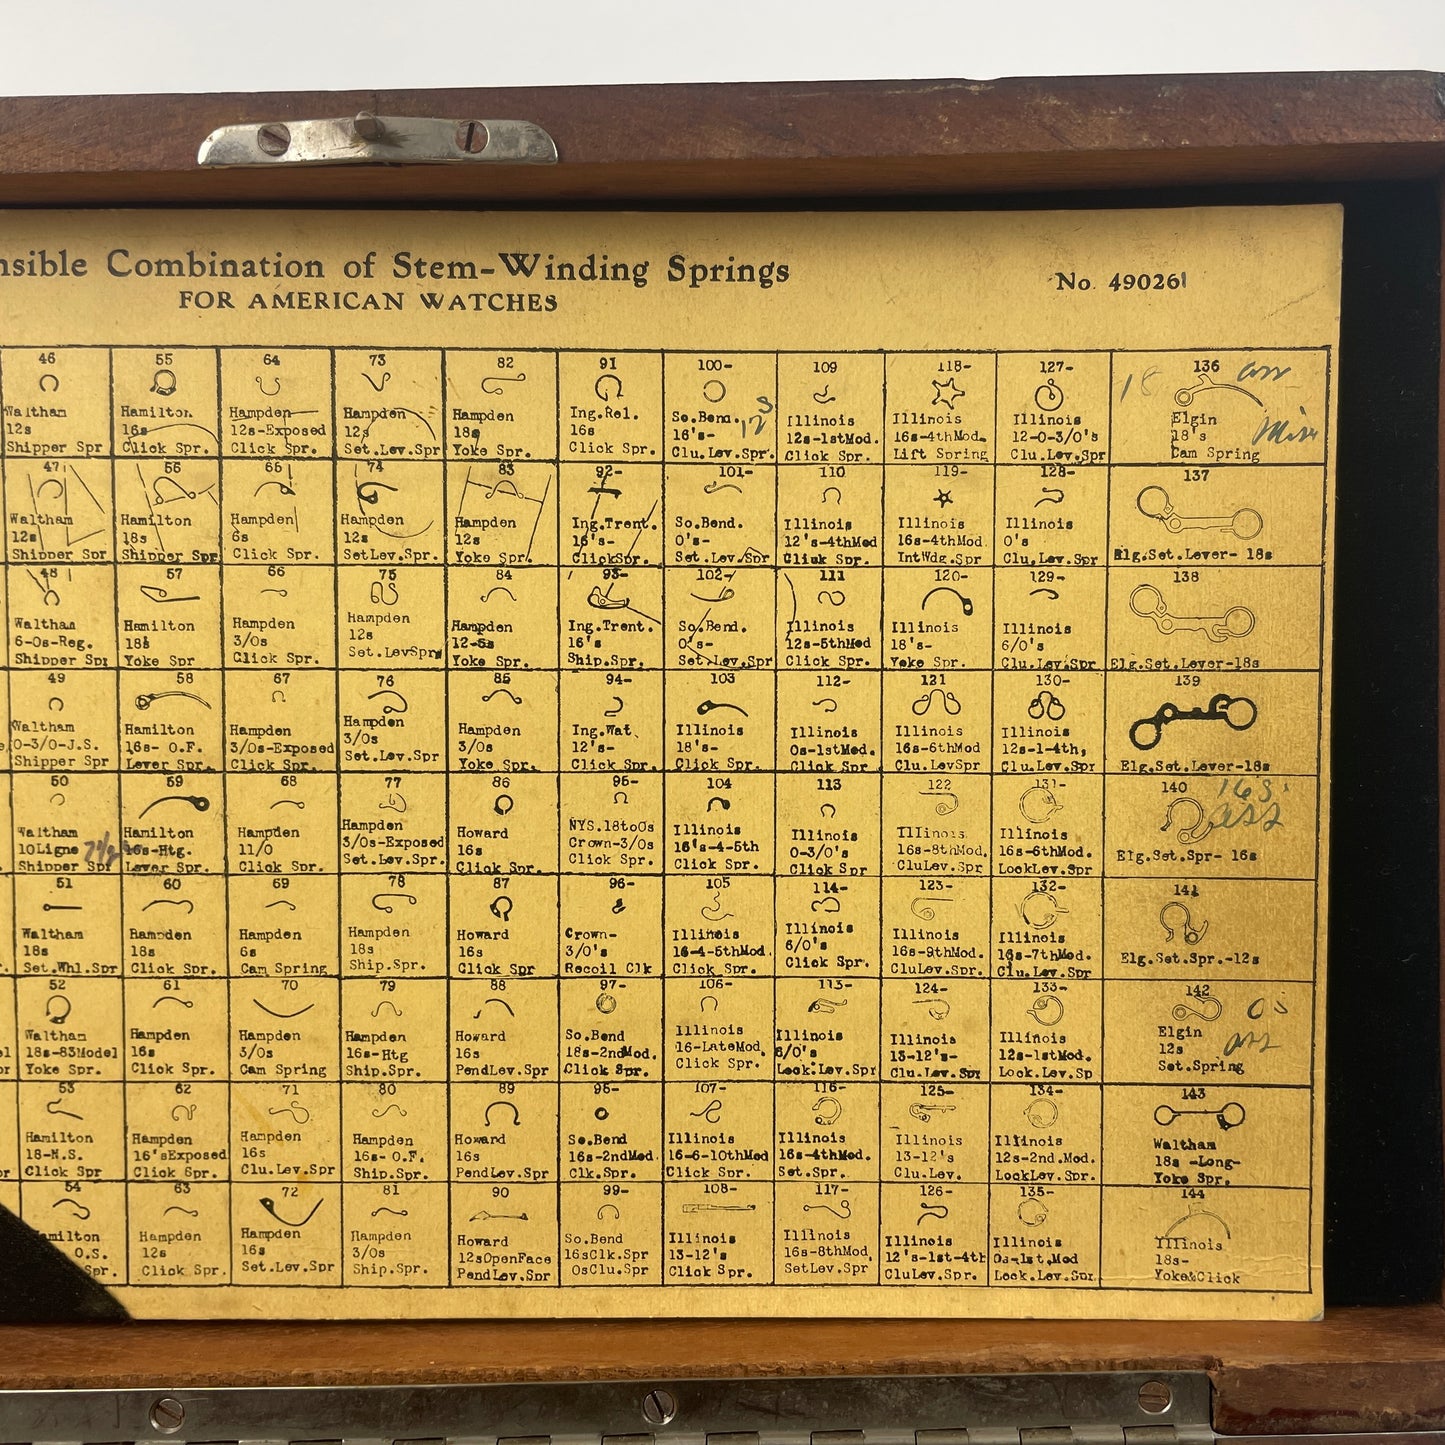 nsible Combination of Stem-Winding Springs
FOR AMERICAN WATCHES
No. 490261
46
Waltham
12s
Shipper Spr
55
Hamilton
16s
Click Spr.
64
Hampden
12s-Exposed
Click Spr.
73
Hampden
12s
Set.Lev.Spr
82
Hampden
18s
Yoke Spr.
91
Ing.Rel.
16s
Click Spr.
100-
So.Bend.
16's-
Clu.Lev.Spr.
12s
109
Illinois
12s-1stMod.
Click Spr.
118-
Illinois
16s-4thMod.
Lift Spring
127-
Illinois
12-0-3/0's
Clu.Lev.Spr
136
Elgin
18's
Cam Spring
18
47
Waltham
12s
Shipper Spr
56
Hamilton
18s
Shipper Spr
65
Hampden
6s
Click Spr.
74
Hampden
12s
SetLev.Spr.
83
Hampden
12s
Yoke Spr.
92-
Ing.Trent.
16's-
ClickSpr.
101-
So.Bend.
0's-
Set.Lev.Spr
110
Illinois
12's-4thMod
Click Spr.
119-
Illinois
16s-4thMod
IntWdg.Spr
128-
Illinois
0's
Clu.Lev.Spr
137
Elg.Set.Lever- 18s
48
Waltham
6-0s-Reg.
Shipper Spr
57
Hamilton
18s
Yoke Spr
66
Hampden
3/0s
Click Spr.
75
Hampden
12s
Set.LevSpr
84
Hampden
12-6s
Yoke Spr.
93-
Ing.Trent.
16's
Ship.Spr.
102-
So.Bend.
0's-
Set.Lev.Spr
111
Illinois
12s-5thMod
Click Spr.
120-
Illinois
18's-
Yoke Spr.
129-
Illinois
6/0's
Clu.Lev.Spr
138
Elg.Set.Lever-18s
49
Waltham
0-3/0-J.S.
Shipper Spr
58
Hamilton
16s- O.F.
Lever Spr.
67
Hampden
3/0s-Exposed
Click Spr.
76
Hampden
3/0s
Set.Lev.Spr
85
Hampden
3/0s
Yoke Spr.
94-
Ing.Wat.
12's-
Click Spr.
103
Illinois
18's-
Click Spr.
112-
Illinois
0s-1stMod.
Click Spr
121
Illinois
16s-6thMod
Clu.LevSpr
130-
Illinois
12s-1-4th,
Clu.Lev.Spr
139
Elg.Set.Lever-18s
50
Waltham
10Ligne
Shipper Spr
59
Hamilton
16s-Htg.
Lever Spr.
68
Hampden
11/0
Click Spr.
77
Hampden
3/0s-Exposed
Set.Lev.Spr.
86
Howard
16s
Click Spr.
95-
NYS.18to0s
Crown-3/0s
Click Spr.
104
Illinois
16's-4-5th
Click Spr.
113
Illinois
0-3/0's
Click Spr
122
Illinois
16s-8thMod.
CluLev.Spr
131-
Illinois
16s-6thMod.
LockLev.Spr
140
Elg.Set.Spr- 16s
16s
51
Waltham
18s
Set.Whl.Spr
60
Hampden
18s
Click Spr.
69
Hampden
6s
Cam Spring
78
Hampden
18s
Ship.Spr.
87
Howard
16s
Click Spr
96-
Crown-
3/0's
Recoil Clk
105
Illinois
16-4-5thMod.
Click Spr.
114-
Illinois
6/0's
Click Spr.
123-
Illinois
16s-9thMod.
CluLev.Spr.
132-
Illinois
16s-7thMod.
Clu.Lev.Spr
141
Elg.Set.Spr.-12s
52
Waltham
18s-83Model
Yoke Spr.
61
Hampden
16s
Click Spr.
70
Hampden
3/0s
Cam Spring
79
Hampden
16s-Htg
Ship.Spr.
88
Howard
16s
PendLev.Spr
97-
So.Bend
18s-2ndMod.
Click Spr.
106-
Illinois
16-LateMod.
Click Spr.
113-
Illinois
6/0's
Lock.Lev.Spr
124-
Illinois
13-12's-
Clu.Lev.Spr
133-
Illinois
12s-1stMod.
Lock.Lev.Sp
142
Elgin
12s
Set.Spring
0s
53
Hamilton
18-N.S.
Click Spr
62
Hampden
16'sExposed
Click Spr.
71
Hampden
16s
Clu.Lev.Spr
80
Hampden
16s- O.F.
Ship.Spr.
89
Howard
16s
PendLev.Spr
98-
So.Bend
16s-2ndMod.
Clk.Spr.
107-
Illinois
16-6-10thMod
Click Spr.
116-
Illinois
16s-4thMod.
Set.Spr.
125-
Illinois
13-12's
Clu.Lev.
134-
Illinois
12s-2nd.Mod.
LockLev.Spr.
143
Waltham
18s -Long-
Yoke Spr.
54
amilton
O.S.
Spr.
63
Hampden
12s
Click Spr.
72
Hampden
16s
Set.Lev.Spr
81
Hampden
3/0s
Ship.Spr.
90
Howard
12sOpenFace
PendLev.Spr
99-
So.Bend
16sClk.Spr
OsClu.Spr
108-
Illinois
13-12's
Click Spr.
117-
Illinois
16s-8thMod.
SetLev.Spr
126-
Illinois
12's-1st-4th
CluLev.Spr.
135-
Illinois
0s-1st.Mod
Lock.Lev.Spr
144
Illinois
18s-
Yoke&Click